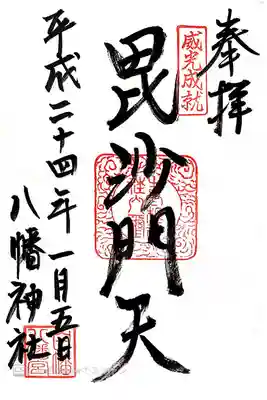 奉拝
威光成就
毘沙門天
平成二十四年一月五日
八幡神社